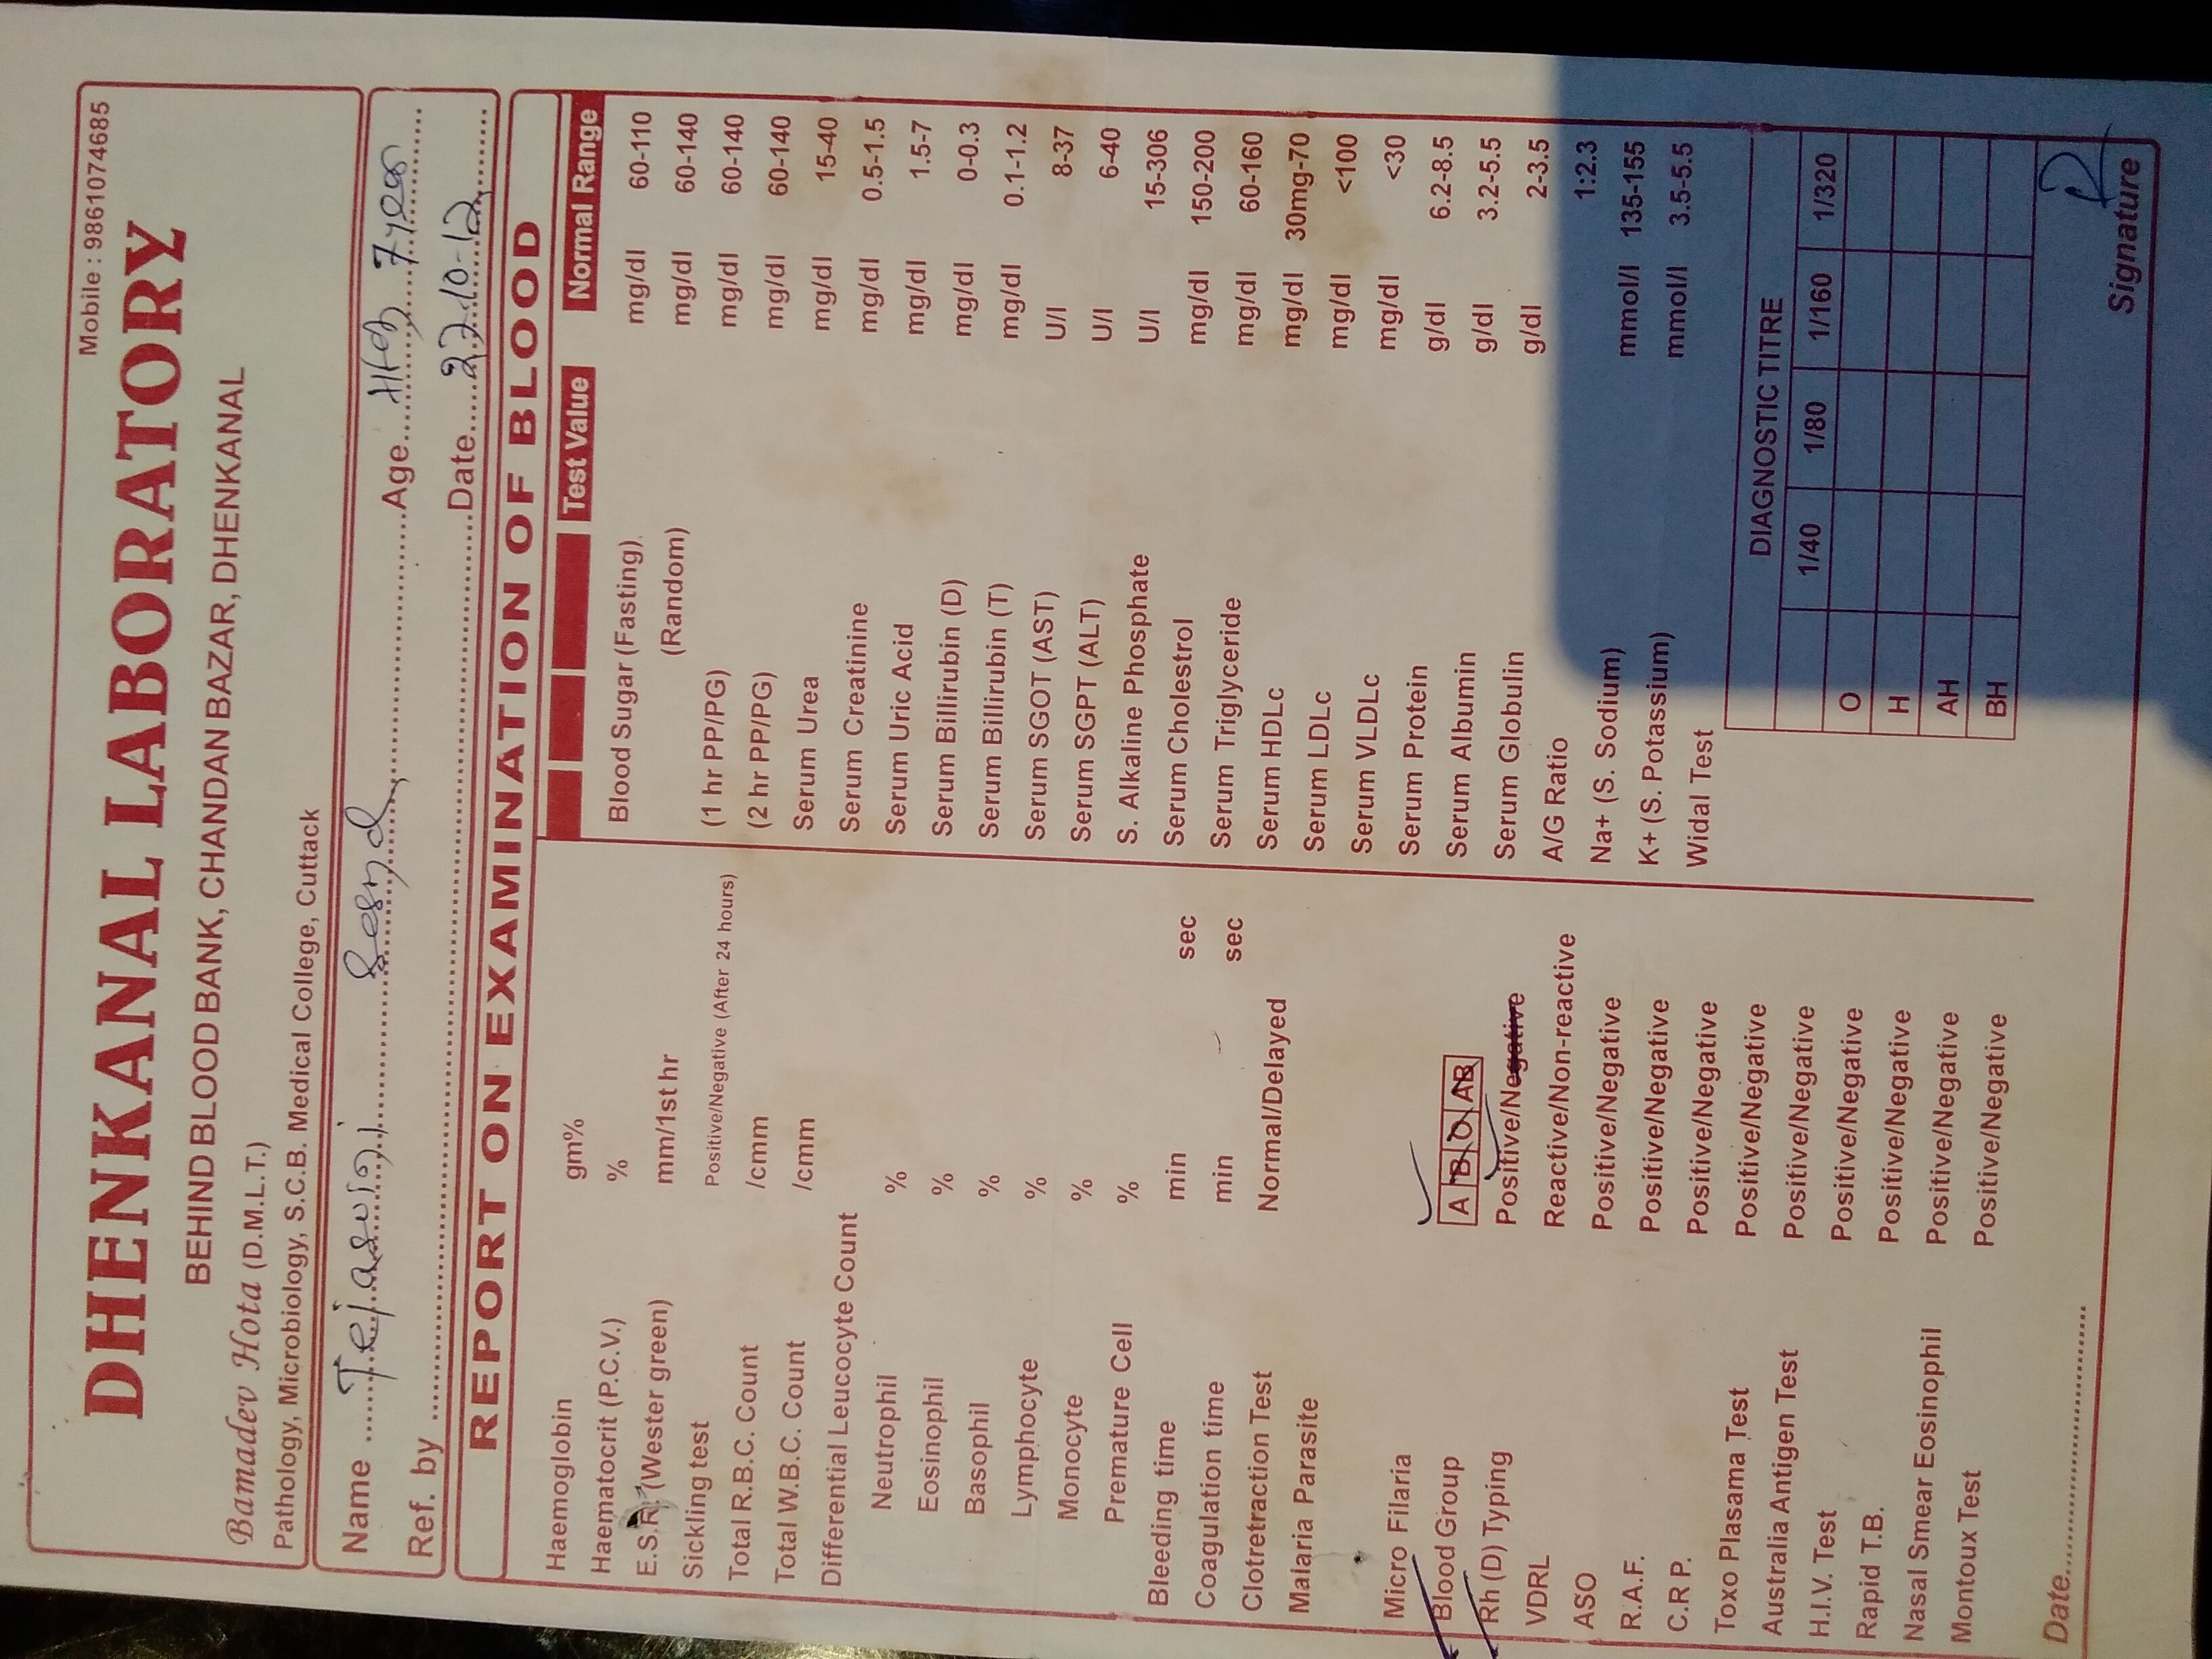 Mobile : 9861074685
DHENKANAL LABORATORY
BEHIND BLOOD BANK, CHANDAN BAZAR, DHENKANAL
Bamadev Hota (D.M.L.T.)
Pathology, Microbiology, S.C.B. Medical College, Cuttack
Name Tejaswini Age 7 years
Ref. by Date 27.10.12
REPORT ON EXAMINATION OF BLOOD
Haemoglobin gm%
Haematocrit (P.C.V.) %
E.S.R. (Wester green) mm/1st hr
Sickling test Positive/Negative (After 24 hours)
Total R.B.C. Count /cmm
Total W.B.C. Count /cmm
Differential Leucocyte Count
Neutrophil %
Eosinophil %
Basophil %
Lymphocyte %
Monocyte %
Premature Cell %
Bleeding time min sec
Coagulation time min sec
Clotretraction Test Normal/Delayed
Malaria Parasite
Micro Filaria
Blood Group A B O AB
Rh (D) Typing Positive/Negative
VDRL Reactive/Non-reactive
ASO Positive/Negative
R.A.F. Positive/Negative
C.R.P. Positive/Negative
Toxo Plasama Test Positive/Negative
Australia Antigen Test Positive/Negative
H.I.V. Test Positive/Negative
Rapid T.B. Positive/Negative
Nasal Smear Eosinophil Positive/Negative
Montoux Test Positive/Negative
Test Value Normal Range
Blood Sugar (Fasting) mg/dl 60-110
(Random) mg/dl 60-140
(1 hr PP/PG) mg/dl 60-140
(2 hr PP/PG) mg/dl 60-140
Serum Urea mg/dl 15-40
Serum Creatinine mg/dl 0.5-1.5
Serum Uric Acid mg/dl 1.5-7
Serum Billirubin (D) mg/dl 0-0.3
Serum Billirubin (T) mg/dl 0.1-1.2
Serum SGOT (AST) U/l 8-37
Serum SGPT (ALT) U/l 6-40
S. Alkaline Phosphate U/l 15-306
Serum Cholestrol mg/dl 150-200
Serum Triglyceride mg/dl 60-160
Serum HDLc mg/dl 30mg-70
Serum LDLc mg/dl <100
Serum VLDLc mg/dl <30
Serum Protein g/dl 6.2-8.5
Serum Albumin g/dl 3.2-5.5
Serum Globulin g/dl 2-3.5
A/G Ratio 1:2.3
Na+ (S. Sodium) mmol/l 135-155
K+ (S. Potassium) mmol/l 3.5-5.5
Widal Test
DIAGNOSTIC TITRE
1/40 1/80 1/160 1/320
O
H
AH
BH
Date
Signature